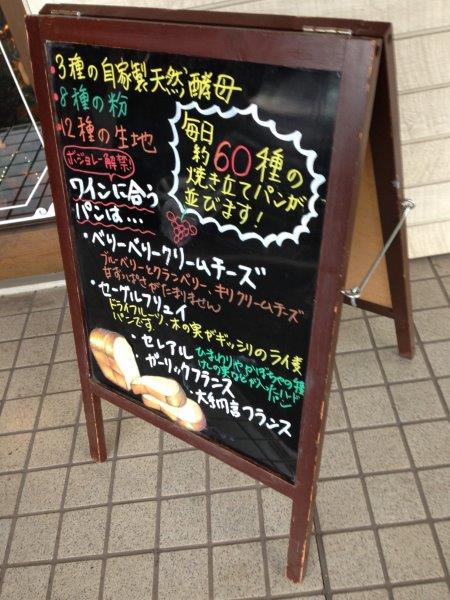 ・3種の自家製天然酵母
・8種の粉
・12種の生地
毎日
約60種の
焼き立てパンが
並びます!
ボジョレー解禁
ワインに合う
パンは…
・ベリーベリークリームチーズ
ブルーベリーとクランベリー、キリクリームチーズ
甘ずっぱさがたまりません
・セーグルフリュイ
ドライフルーツ・木の実がギッシリのライ麦
パンです。
・セレアル
ひまわりやかぼちゃの種
けしの実など入ったハード
パン
・ガーリックフランス
・大納言フランス